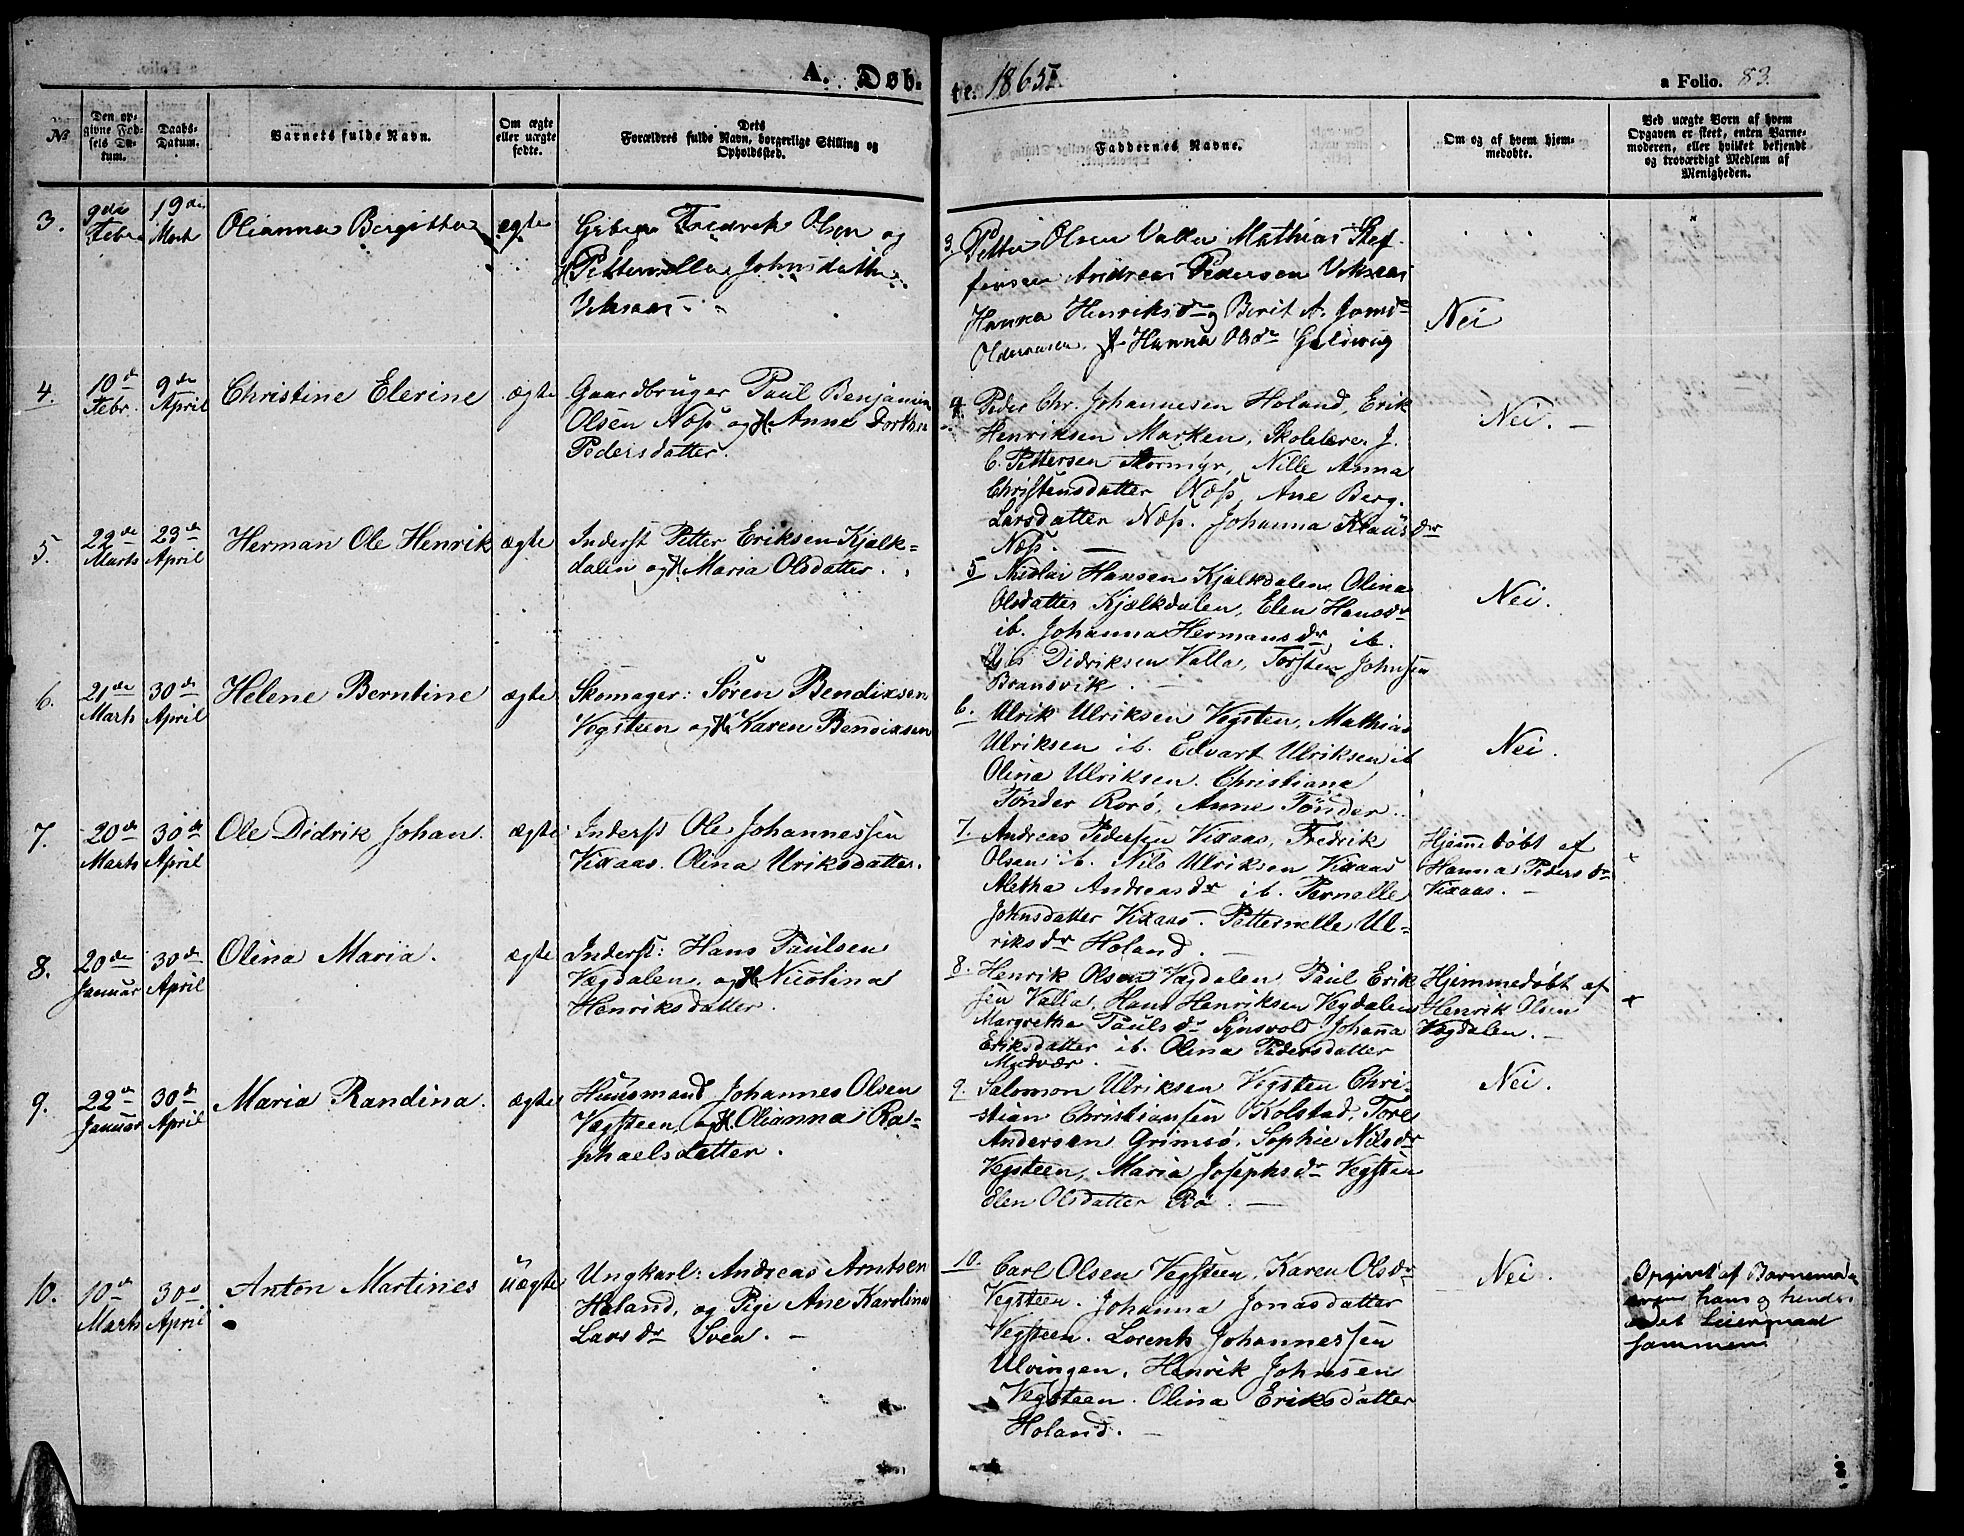 A. Døb-
te. 1865.
a Folio. 83.
№
Den op-
givne Fød-
sels Da-
tum.
Daabs-
Datum.
Barnets fulde Navn.
Om ægte
eller uægte
fødte.
Dets
Forældres fulde Navn, borgerlige Stilling og
Opholdssted.
Faddernes Navne.
Om og af hvem hjem-
medøbte.
Ved uægte Børn af hvem
Opgaven er skeet, enten Barne-
moderen, eller hvilket bekjendt
og troværdigt Medlem af
Menigheden.
3.
9de
Febr
19de
Mart
Olianna Bergitta
ægte
Fredrik Olsen og
Petternella Johnsdatter
Vixaas
3. Petter Olsen Valla Mathias Stef-
fensen Andreas Pedersen Vixaas
Hanna Henriksdr og Berit A. Jonsdr
Hanna Olsdr
Nei
4.
10de
Febr.
9de
April
Christine Elerine
ægte
Gaardbruger Paul Benjamin
Olsen Næss og H. Anne Dorthea
Pedersdatter.
4. Peder Chr. Johannesen Holand, Erik
Henriksen Marken, Skolelærer J.
C. Pettersen Stormyr, Nille Anna
Christensdatter Næss, Ane Berg.
Larsdatter Næss. Johanna Klausdr
Næss.
Nei.
5.
29de
Marts
23de
April
Herman Ole Henrik
ægte
Inderst Petter Eriksen Kjælk-
dalen og H. Maria Olsdatter.
5 Nicolai Hansen Kjælkdalen, Olina
Olsdatter Kjælkdalen, Elen Hansdr
ib. Johanna Hermansdr ib.
Didriksen Valla, Torsten Johnsen
Bransvik.
Nei.
6.
21de
Marts
30de
April
Helene Berntine
ægte
Skomager: Søren Bendixsen
Vegsteen og H. Karen Bendixsen
6. Ulrik Ulriksen Vegsten, Mathias
Ulriksen ib. Edvart Ulriksen ib
Olina Ulriksen. Christiane
Tønder Rorø, Anne Tønder.
Nei.
7.
20de
Marts
30te
April
Ole Didrik Johan.
ægte
Inderst Ole Johannessen
Vixaas. Olina Uriksdatter.
7. Andreas Pedersen Vixaas, Fredrik
Olsen ib. Nils Ulriksen Vixaas
Aletha Andreasdr ib. Pernelle
Johnsdatter Vixaas. Petternelle Ul-
riksdr Holand.
Hjemmedøbt af
Hanna Pedersdr
Vixaas.
8.
20de
Januar
30de
April
Olina Maria.
ægte
Inderst: Hans Paulsen
Vegdalen og H Nicolina
Henriksdatter.
8. Henrik Olsen Vegdalen Paul Erik
sen Valla, Hans Henriksen Vegdalen
Margrethe Paulsdr Synsvold Johanna
Eriksdatter ib. Olina Pedersdatter
Madvær.
Hjemmedøbt af
Henrik Olsen
Vegdalen.
9.
22de
Januar
30de
April
Maria Randina.
ægte
Huusmand Johannes Olsen
Vegsteen og H. Olianna Ra-
phaelsdatter.
9. Salomon Ulriksen Vegsten Chri-
stian Christiansen Kolstad, Tore
Andersen Grimsø, Sophie Nilsdr
Vegsteen, Maria Josephsdr Vegsten
Elen Olsdatter Rø.
Nei.
10.
10de
Marts
30d
April
Anton Martines
uægte
Ungkarl: Andreas Arntsen
Holand, og Pige Ane Karolina
Larsdr Sven.
10. Carl Olsen Vegsteen, Karen Olsdr
Vegsteen. Johanna Jonasdatter
Vegsteen. Lorents Johannessen
Ulvingen, Henrik Johnsen
Vegsteen. Olina Eriksdatter
Holand.
Nei.
Opgivet af Barnemod-
eren hans og hendes
det Leiermaal
sammen